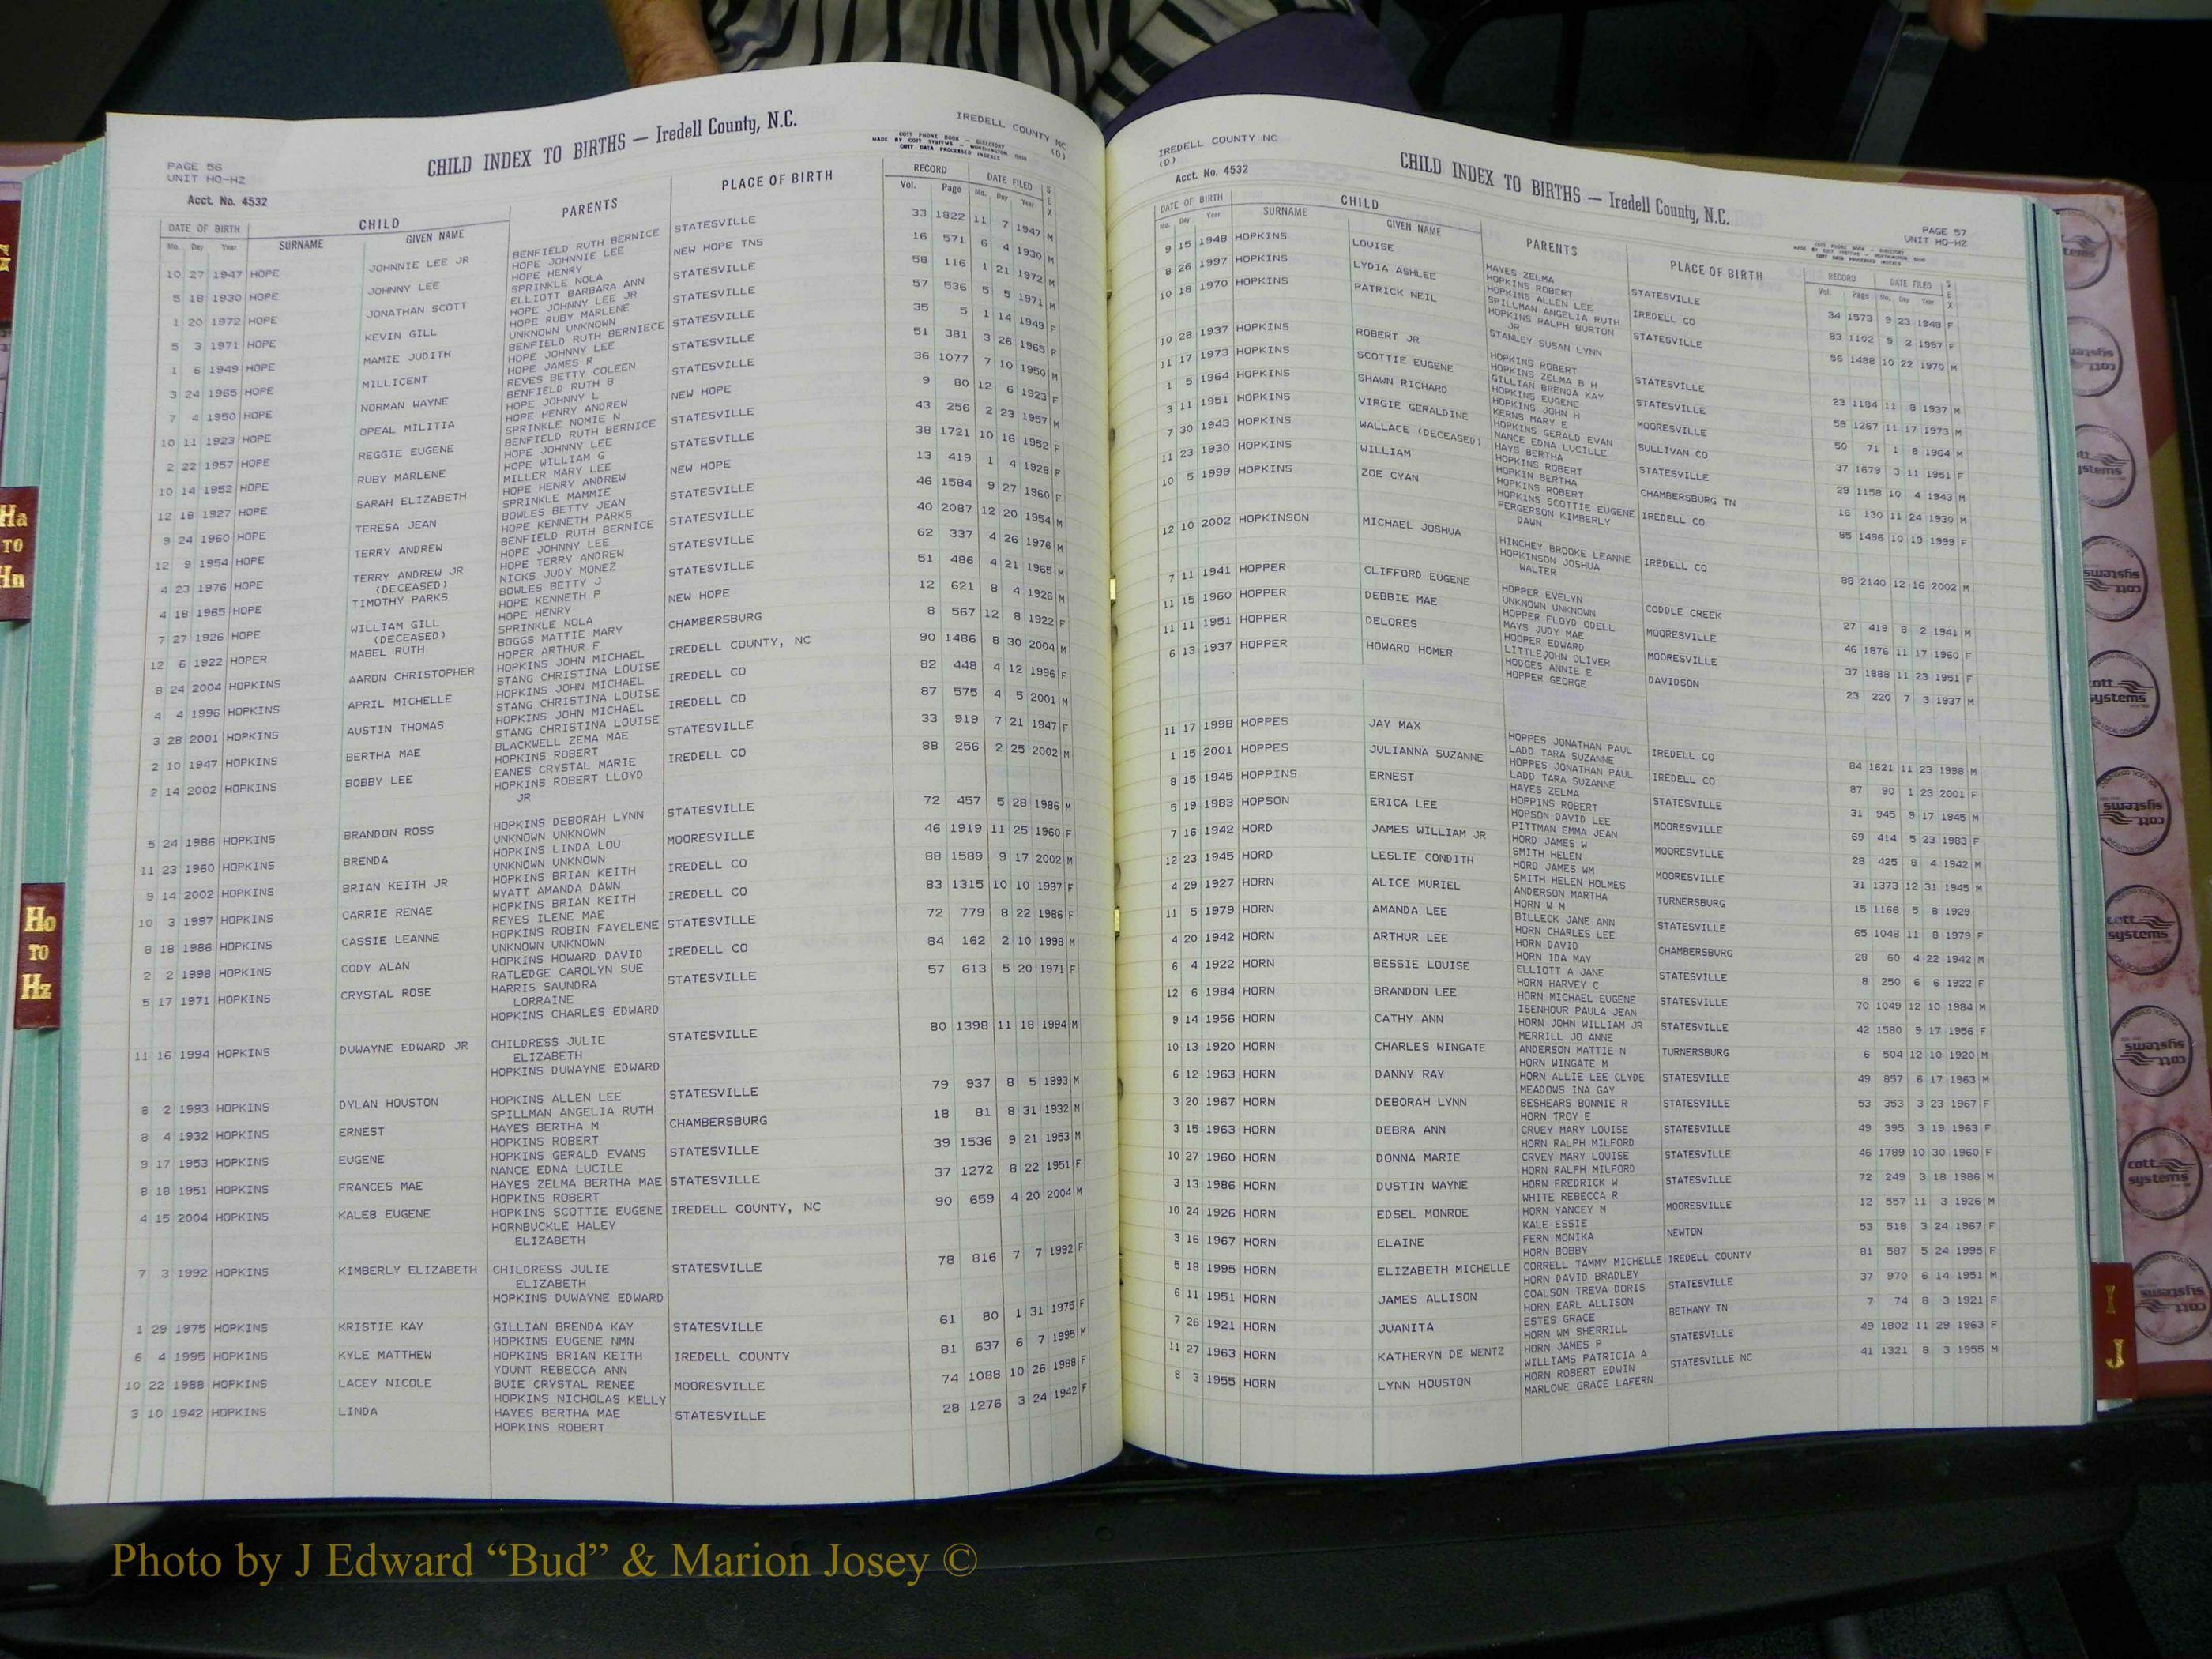 PAGE 56
UNIT HO-HZ
Acct. No. 4532
CHILD INDEX TO BIRTHS — Iredell County, N.C.
COTT PHONE BOOK - DIRECTORY
MADE BY COTT SYSTEMS - WORTHINGTON
COTT DATA PROCESSED INDEXES
IREDELL COUNTY NC
(D)
DATE OF BIRTH CHILD PARENTS PLACE OF BIRTH RECORD DATE FILED SEX
Mo. Day Year SURNAME GIVEN NAME Vol. Page Mo. Day Year
10 27 1947 HOPE JOHNNIE LEE JR BENFIELD RUTH BERNICE STATESVILLE 33 1822 11 7 1947 M
HOPE JOHNNIE LEE
5 18 1930 HOPE JOHNNY LEE HOPE HENRY NEW HOPE TNS 16 571 6 4 1930 M
SPRINKLE NOLA
1 20 1972 HOPE JONATHAN SCOTT ELLIOTT BARBARA ANN STATESVILLE 58 116 1 21 1972 M
HOPE JOHNNY LEE JR
5 3 1971 HOPE KEVIN GILL HOPE RUBY MARLENE STATESVILLE 57 536 5 5 1971 M
UNKNOWN UNKNOWN
1 6 1949 HOPE MAMIE JUDITH BENFIELD RUTH BERNIECE STATESVILLE 35 5 1 14 1949 F
HOPE JOHNNY LEE
3 24 1965 HOPE MILLICENT HOPE JAMES R STATESVILLE 51 381 3 26 1965 F
REVES BETTY COLEEN
7 4 1950 HOPE NORMAN WAYNE BENFIELD RUTH B STATESVILLE 36 1077 7 10 1950 M
HOPE JOHNNY L
10 11 1923 HOPE OPEAL MILITIA HOPE HENRY ANDREW NEW HOPE 9 80 12 6 1923 F
SPRINKLE NOMIE N
2 22 1957 HOPE REGGIE EUGENE BENFIELD RUTH BERNICE STATESVILLE 43 256 2 23 1957 M
HOPE JOHNNY LEE
10 14 1952 HOPE RUBY MARLENE HOPE WILLIAM G STATESVILLE 38 1721 10 16 1952 F
MILLER MARY LEE
12 18 1927 HOPE SARAH ELIZABETH HOPE HENRY ANDREW NEW HOPE 13 419 1 4 1928 F
SPRINKLE MAMMIE
9 24 1960 HOPE TERESA JEAN BOWLES BETTY JEAN STATESVILLE 46 1584 9 27 1960 F
HOPE KENNETH PARKS
12 9 1954 HOPE TERRY ANDREW BENFIELD RUTH BERNICE STATESVILLE 40 2087 12 20 1954 M
HOPE JOHNNY LEE
4 23 1976 HOPE TERRY ANDREW JR HOPE TERRY ANDREW STATESVILLE 62 337 4 26 1976 M
(DECEASED) NICKS JUDY MONEZ
4 18 1965 HOPE TIMOTHY PARKS BOWLES BETTY J STATESVILLE 51 486 4 21 1965 M
HOPE KENNETH P
7 27 1926 HOPE WILLIAM GILL HOPE HENRY NEW HOPE 12 621 8 4 1926 M
(DECEASED) SPRINKLE NOLA
12 6 1922 HOPER MABEL RUTH BOGGS MATTIE MARY CHAMBERSBURG 8 567 12 8 1922 F
HOPER ARTHUR F
8 24 2004 HOPKINS AARON CHRISTOPHER HOPKINS JOHN MICHAEL IREDELL COUNTY, NC 90 1486 8 30 2004 M
STANG CHRISTINA LOUISE
4 4 1996 HOPKINS APRIL MICHELLE HOPKINS JOHN MICHAEL IREDELL CO 82 448 4 12 1996 F
STANG CHRISTINA LOUISE
3 28 2001 HOPKINS AUSTIN THOMAS HOPKINS JOHN MICHAEL IREDELL CO 87 575 4 5 2001 M
STANG CHRISTINA LOUISE
2 10 1947 HOPKINS BERTHA MAE BLACKWELL ZEMA MAE STATESVILLE 33 919 7 21 1947 F
HOPKINS ROBERT
2 14 2002 HOPKINS BOBBY LEE EANES CRYSTAL MARIE IREDELL CO 88 256 2 25 2002 M
HOPKINS ROBERT LLOYD
JR
5 24 1986 HOPKINS BRANDON ROSS HOPKINS DEBORAH LYNN STATESVILLE 72 457 5 28 1986 M
UNKNOWN UNKNOWN
11 23 1960 HOPKINS BRENDA HOPKINS LINDA LOU MOORESVILLE 46 1919 11 25 1960 F
UNKNOWN UNKNOWN
9 14 2002 HOPKINS BRIAN KEITH JR HOPKINS BRIAN KEITH IREDELL CO 88 1589 9 17 2002 M
WYATT AMANDA DAWN
10 3 1997 HOPKINS CARRIE RENAE HOPKINS BRIAN KEITH IREDELL CO 83 1315 10 10 1997 F
REYES ILENE MAE
8 18 1986 HOPKINS CASSIE LEANNE HOPKINS ROBIN FAYELENE STATESVILLE 72 779 8 22 1986 F
UNKNOWN UNKNOWN
2 2 1998 HOPKINS CODY ALAN HOPKINS HOWARD DAVID IREDELL CO 84 162 2 10 1998 M
RATLEDGE CAROLYN SUE
5 17 1971 HOPKINS CRYSTAL ROSE HARRIS SAUNDRA STATESVILLE 57 613 5 20 1971 F
LORRAINE
HOPKINS CHARLES EDWARD
11 16 1994 HOPKINS DUWAYNE EDWARD JR CHILDRESS JULIE STATESVILLE 80 1398 11 18 1994 M
ELIZABETH
HOPKINS DUWAYNE EDWARD
8 2 1993 HOPKINS DYLAN HOUSTON HOPKINS ALLEN LEE STATESVILLE 79 937 8 5 1993 M
SPILLMAN ANGELIA RUTH
8 4 1932 HOPKINS ERNEST HAYES BERTHA M CHAMBERSBURG 18 81 8 31 1932 M
HOPKINS ROBERT
9 17 1953 HOPKINS EUGENE HOPKINS GERALD EVANS STATESVILLE 39 1536 9 21 1953 M
NANCE EDNA LUCILE
8 18 1951 HOPKINS FRANCES MAE HAYES ZELMA BERTHA MAE STATESVILLE 37 1272 8 22 1951 F
HOPKINS ROBERT
4 15 2004 HOPKINS KALEB EUGENE HOPKINS SCOTTIE EUGENE IREDELL COUNTY, NC 90 659 4 20 2004 M
HORNBUCKLE HALEY
ELIZABETH
7 3 1992 HOPKINS KIMBERLY ELIZABETH CHILDRESS JULIE STATESVILLE 78 816 7 7 1992 F
ELIZABETH
HOPKINS DUWAYNE EDWARD
1 29 1975 HOPKINS KRISTIE KAY GILLIAN BRENDA KAY STATESVILLE 61 80 1 31 1975 F
HOPKINS EUGENE NMN
6 4 1995 HOPKINS KYLE MATTHEW HOPKINS BRIAN KEITH IREDELL COUNTY 81 637 6 7 1995 M
YOUNT REBECCA ANN
10 22 1988 HOPKINS LACEY NICOLE BUIE CRYSTAL RENEE MOORESVILLE 74 1088 10 26 1988 F
HOPKINS NICHOLAS KELLY
3 10 1942 HOPKINS LINDA HAYES BERTHA MAE STATESVILLE 28 1276 3 24 1942 F
HOPKINS ROBERT
IREDELL COUNTY NC
(D)
Acct. No. 4532
CHILD INDEX TO BIRTHS — Iredell County, N.C.
PAGE 57
UNIT HO-HZ
DATE OF BIRTH CHILD PARENTS PLACE OF BIRTH RECORD DATE FILED SEX
Mo. Day Year SURNAME GIVEN NAME Vol. Page Mo. Day Year
9 15 1948 HOPKINS LOUISE HAYES ZELMA STATESVILLE 34 1573 9 23 1948 F
HOPKINS ROBERT
8 26 1997 HOPKINS LYDIA ASHLEE HOPKINS ALLEN LEE IREDELL CO 83 1102 9 2 1997 F
SPILLMAN ANGELIA RUTH
10 18 1970 HOPKINS PATRICK NEIL HOPKINS RALPH BURTON STATESVILLE 56 1488 10 22 1970 M
JR
STANLEY SUSAN LYNN
10 28 1937 HOPKINS ROBERT JR HOPKINS ROBERT STATESVILLE 23 1184 11 8 1937 M
HOPKINS ZELMA B H
11 17 1973 HOPKINS SCOTTIE EUGENE GILLIAN BRENDA KAY STATESVILLE 59 1267 11 17 1973 M
HOPKINS EUGENE
1 5 1964 HOPKINS SHAWN RICHARD HOPKINS JOHN H MOORESVILLE 50 71 1 8 1964 M
KERNS MARY E
3 11 1951 HOPKINS VIRGIE GERALDINE HOPKINS GERALD EVAN SULLIVAN CO 37 1679 3 11 1951 F
NANCE EDNA LUCILLE
7 30 1943 HOPKINS WALLACE (DECEASED) HAYS BERTHA STATESVILLE 29 1158 10 4 1943 M
HOPKINS ROBERT
11 23 1930 HOPKINS WILLIAM HOPKIN BERTHA CHAMBERSBURG TN 16 130 11 24 1930 M
HOPKINS ROBERT
10 5 1999 HOPKINS ZOE CYAN HOPKINS SCOTTIE EUGENE IREDELL CO 85 1496 10 19 1999 F
PERGERSON KIMBERLY
DAWN
12 10 2002 HOPKINSON MICHAEL JOSHUA HINCHEY BROOKE LEANNE IREDELL CO 88 2140 12 16 2002 M
HOPKINSON JOSHUA
WALTER
7 11 1941 HOPPER CLIFFORD EUGENE HOPPER EVELYN CODDLE CREEK 27 419 8 2 1941 M
UNKNOWN UNKNOWN
11 15 1960 HOPPER DEBBIE MAE HOPPER FLOYD ODELL MOORESVILLE 46 1876 11 17 1960 F
MAYS JUDY MAE
11 11 1951 HOPPER DELORES HOOPER EDWARD MOORESVILLE 37 1888 11 23 1951 F
LITTLEJOHN OLIVER
6 13 1937 HOPPER HOWARD HOMER HODGES ANNIE E DAVIDSON 23 220 7 3 1937 M
HOPPER GEORGE
11 17 1998 HOPPES JAY MAX HOPPES JONATHAN PAUL IREDELL CO 84 1621 11 23 1998 M
LADD TARA SUZANNE
1 15 2001 HOPPES JULIANNA SUZANNE HOPPES JONATHAN PAUL IREDELL CO 87 90 1 23 2001 F
LADD TARA SUZANNE
8 15 1945 HOPPINS ERNEST HAYES ZELMA STATESVILLE 31 945 9 17 1945 M
HOPPINS ROBERT
5 19 1983 HOPSON ERICA LEE HOPSON DAVID LEE MOORESVILLE 69 414 5 23 1983 F
PITTMAN EMMA JEAN
7 16 1942 HORD JAMES WILLIAM JR HORD JAMES W MOORESVILLE 28 425 8 4 1942 M
SMITH HELEN
12 23 1945 HORD LESLIE CONDITH HORD JAMES WM MOORESVILLE 31 1373 12 31 1945 M
SMITH HELEN HOLMES
4 29 1927 HORN ALICE MURIEL ANDERSON MARTHA TURNERSBURG 15 1166 5 8 1929
HORN W M
11 5 1979 HORN AMANDA LEE BILLECK JANE ANN STATESVILLE 65 1048 11 8 1979 F
HORN CHARLES LEE
4 20 1942 HORN ARTHUR LEE HORN DAVID CHAMBERSBURG 28 60 4 22 1942 M
HORN IDA MAY
6 4 1922 HORN BESSIE LOUISE ELLIOTT A JANE STATESVILLE 8 250 6 6 1922 F
HORN HARVEY C
12 6 1984 HORN BRANDON LEE HORN MICHAEL EUGENE STATESVILLE 70 1049 12 10 1984 M
ISENHOUR PAULA JEAN
9 14 1956 HORN CATHY ANN HORN JOHN WILLIAM JR STATESVILLE 42 1580 9 17 1956 F
MERRILL JO ANNE
10 13 1920 HORN CHARLES WINGATE ANDERSON MATTIE N TURNERSBURG 6 504 12 10 1920 M
HORN WINGATE M
6 12 1963 HORN DANNY RAY HORN ALLIE LEE CLYDE STATESVILLE 49 857 6 17 1963 M
MEADOWS INA GAY
3 20 1967 HORN DEBORAH LYNN BESHEARS BONNIE R STATESVILLE 53 353 3 23 1967 F
HORN TROY E
3 15 1963 HORN DEBRA ANN CRUEY MARY LOUISE STATESVILLE 49 395 3 19 1963 F
HORN RALPH MILFORD
10 27 1960 HORN DONNA MARIE CRVEY MARY LOUISE STATESVILLE 46 1789 10 30 1960 F
HORN RALPH MILFORD
3 13 1986 HORN DUSTIN WAYNE HORN FREDRICK W STATESVILLE 72 249 3 18 1986 M
WHITE REBECCA R
10 24 1926 HORN EDSEL MONROE HORN YANCEY M MOORESVILLE 12 557 11 3 1926 M
KALE ESSIE
3 16 1967 HORN ELAINE FERN MONIKA NEWTON 53 518 3 24 1967 F
HORN BOBBY
5 18 1995 HORN ELIZABETH MICHELLE CORRELL TAMMY MICHELLE IREDELL COUNTY 81 587 5 24 1995 F
HORN DAVID BRADLEY
6 11 1951 HORN JAMES ALLISON COALSON TREVA DORIS STATESVILLE 37 970 6 14 1951 M
HORN EARL ALLISON
7 26 1921 HORN JUANITA ESTES GRACE BETHANY TN 7 74 8 3 1921 F
HORN WM SHERRILL
11 27 1963 HORN KATHERYN DE WENTZ HORN JAMES P STATESVILLE 49 1802 11 29 1963 F
WILLIAMS PATRICIA A
8 3 1955 HORN LYNN HOUSTON HORN ROBERT EDWIN STATESVILLE NC 41 1321 8 3 1955 M
MARLOWE GRACE LAFERN
Ha
TO
Hn
Ho
TO
Hz
I
J
cott
systems
Photo by J Edward “Bud” & Marion Josey ©